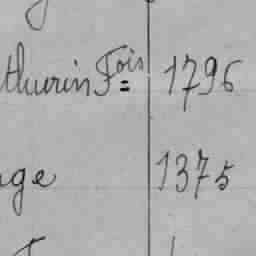 thurin Fois 1796
ge 1375